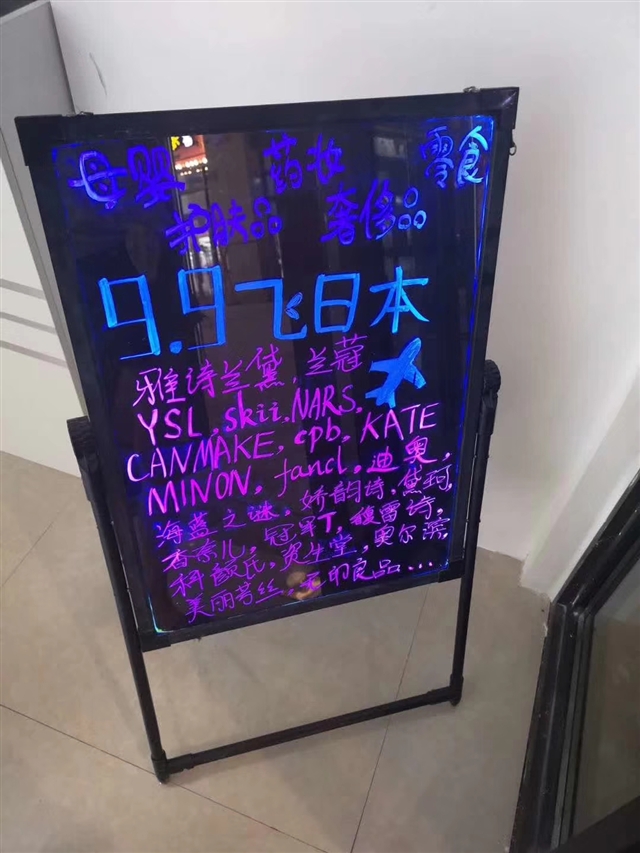 母婴 药妆 零食
护肤品 奢侈品
9.9飞日本
雅诗兰黛,兰蔻
YSL,skii,NARS,
CANMAKE,cpb,KATE
MINON,fancl,迪奥,
海蓝之谜,娇韵诗,黛珂,
香奈儿,冠军T,馥蕾诗,
科颜氏,资生堂,奥尔滨
美丽芳丝,无印良品...